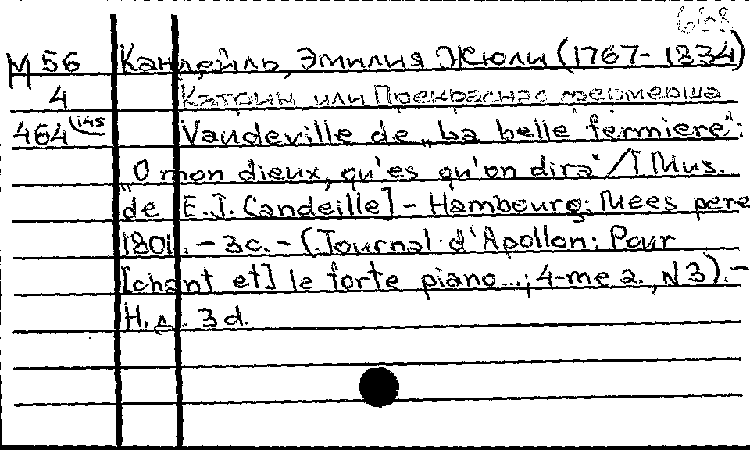 668
М 56 Кандейль, Эмилия Жюли (1767-1834)
4 Катрин или Прекрасная фермерша
464 145 Vaudeville de „La belle fermiere":
„O mon dieux, qu'es qu'on dira" / [Mus.
de E.J. Candeille] - Hambourg: Mees pere
1801. - 3с. - (Journal d'Apollon: Pour
[chant et] le forte piano...; 4-me a., N 3). -
Н. д. 3 d.